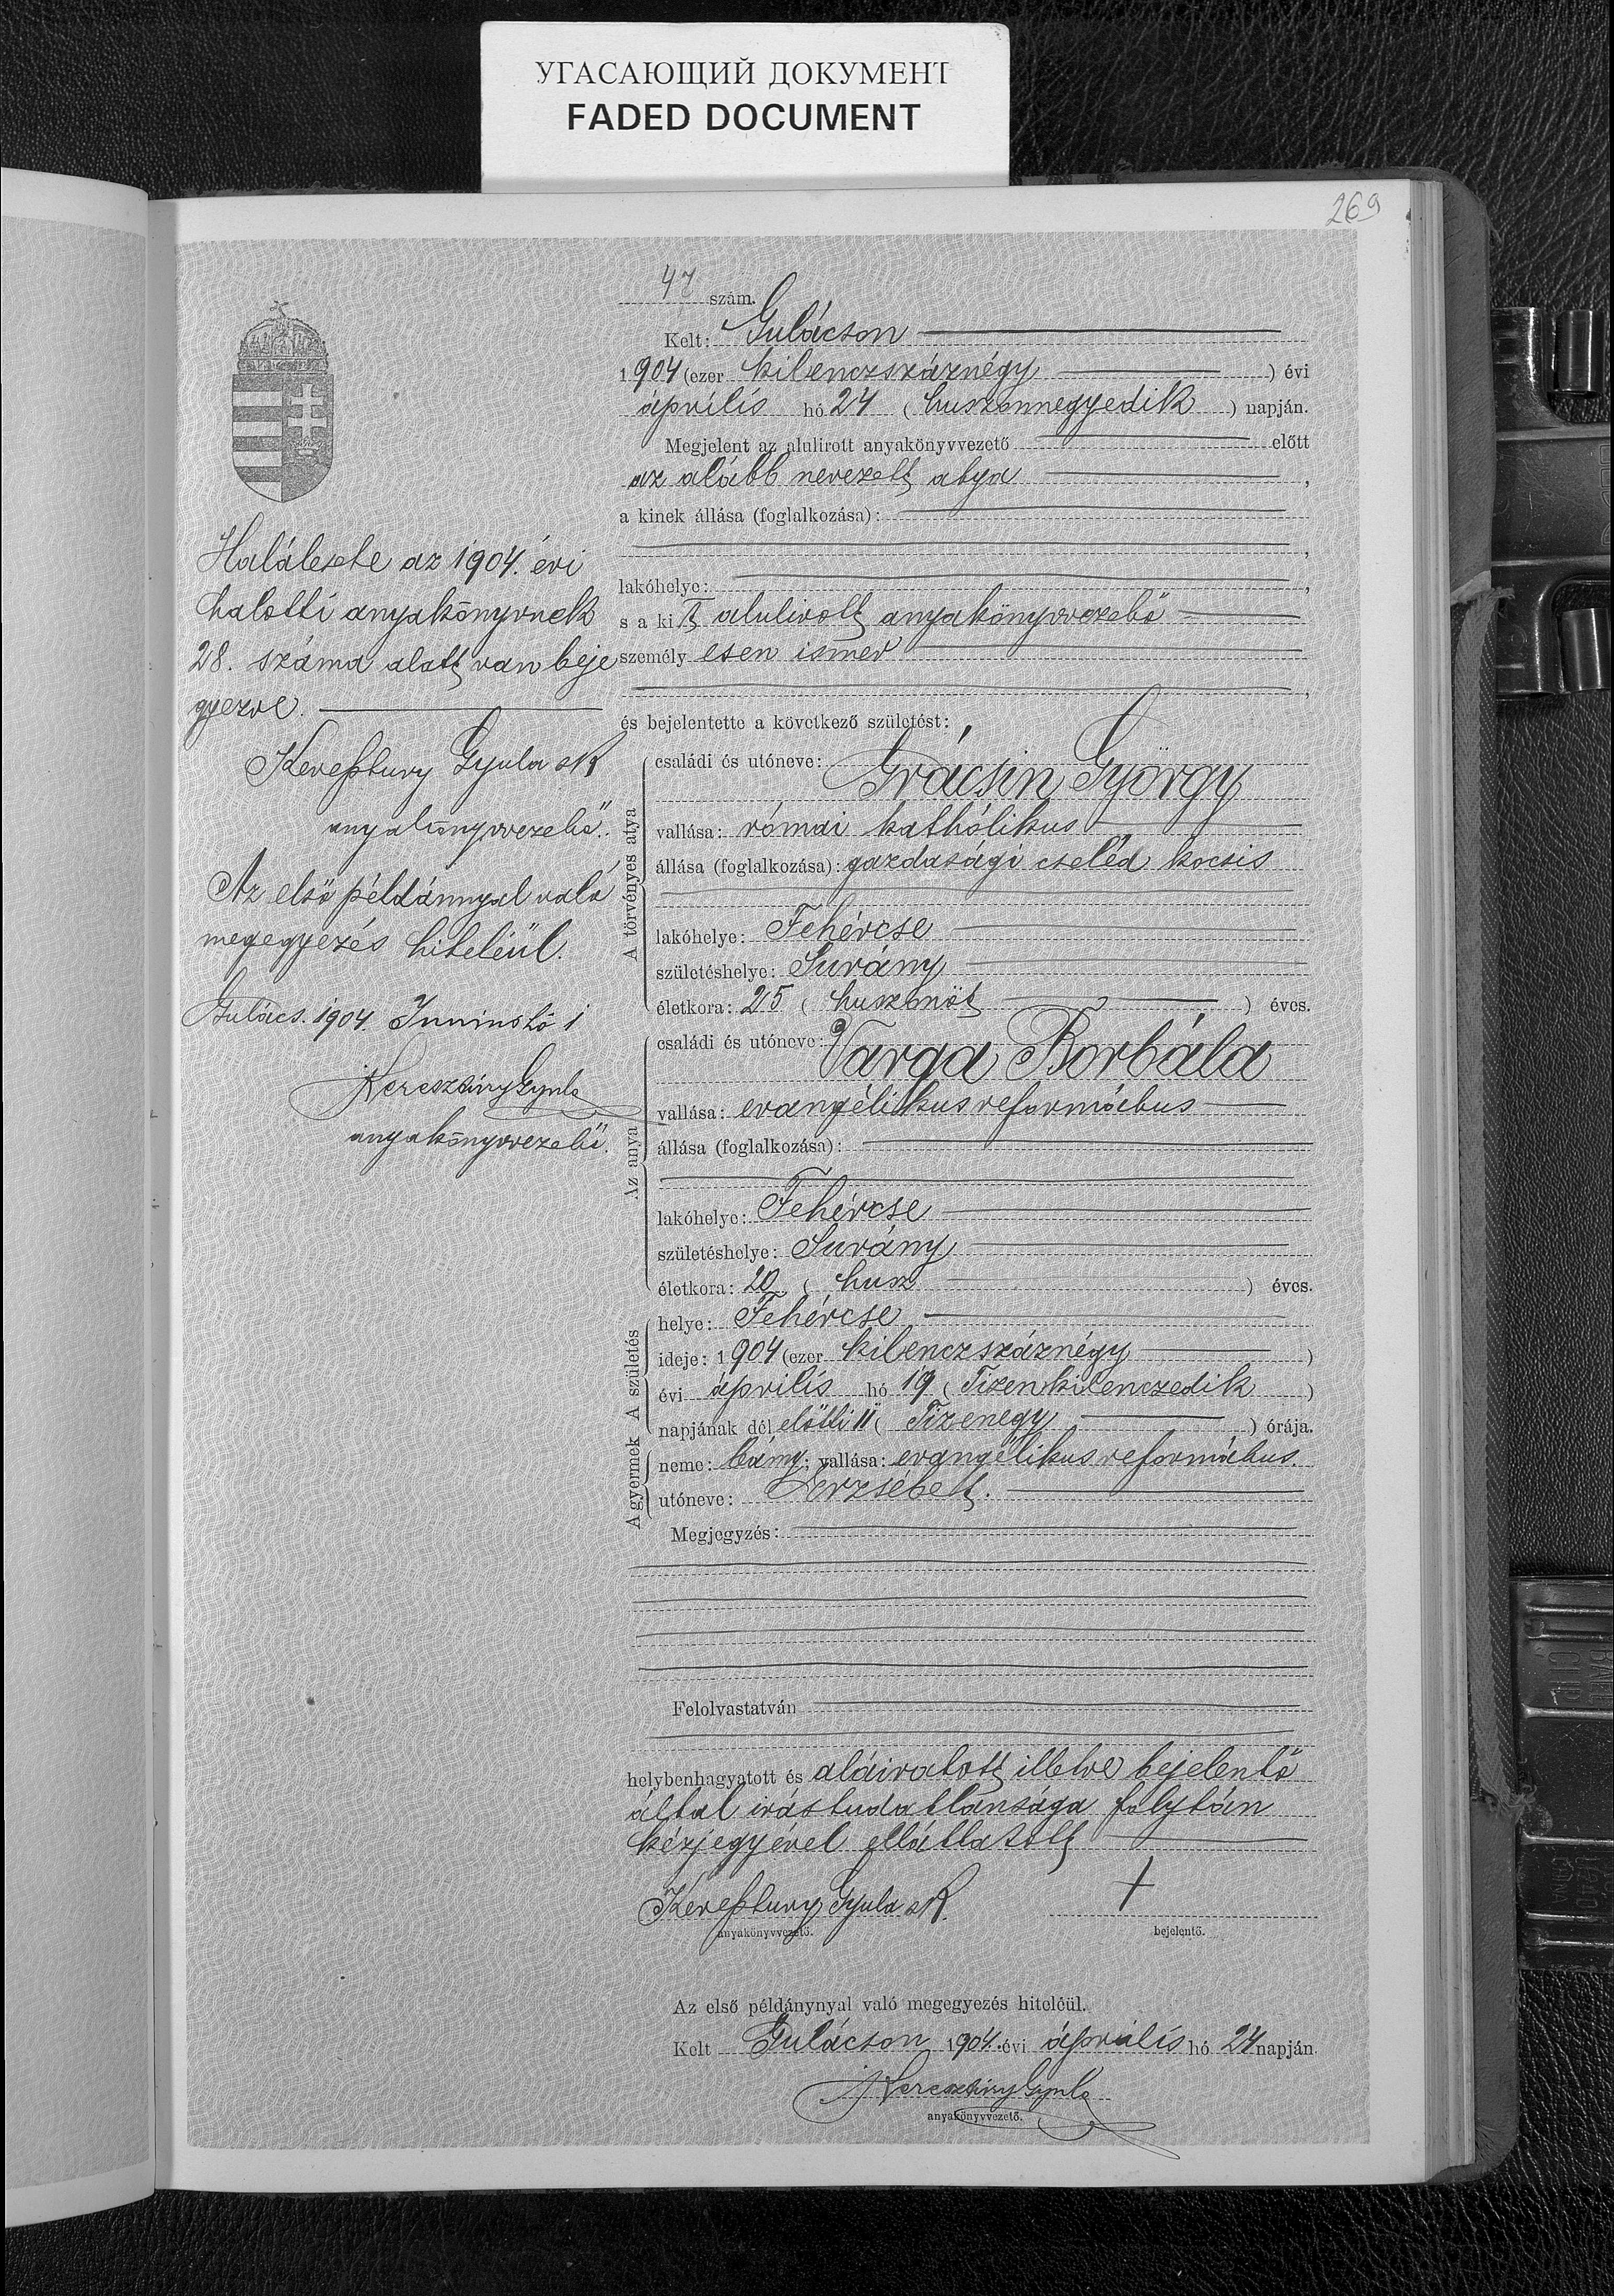 УГАСАЮЩИЙ ДОКУМЕНТ
FADED DOCUMENT
269
47 szám.
Kelt: Gulácson
1904 (ezer kilenczszáznégy ) évi
április hó 24 ( huszonnegyedik ) napján.
Megjelent az alulirott anyakönyvvezető előtt
az alább nevezett atya ,
a kinek állása (foglalkozása):
,
lakóhelye: ,
s a kit alulirott anyakönyvvezető
személyesen ismer
,
és bejelentette a következő születést:
A törvényes atya
családi és utóneve: Grácsin György
vallása: római kathólikus
állása (foglalkozása): gazdasági cseléd kocsis
lakóhelye: Fehércse
születéshelye: Surány
életkora: 25 ( huszonöt ) éves.
Az anya
családi és utóneve: Varga Borbála
vallása: evangélikus református
állása (foglalkozása):
lakóhelye: Fehércse
születéshelye: Surány
életkora: 20 ( husz ) éves.
A születés
helye: Fehércse
ideje: 1904 (ezer kilenczszáznégy )
évi április hó 19 ( Tizenkilenczedik )
napjának dél előtti 11 ( Tizenegy ) órája.
A gyermek
neme: leány; vallása: evangélikus református.
utóneve: Erzsébet.
Megjegyzés:
Felolvastatván
helybenhagyatott és aláiratott illetve bejelentő
által irástudatlansága folytán
kézjegyével elláttatott
Kereßtury Gyula sk.
anyakönyvvezető.
+
bejelentő.
Az első példánynyal való megegyezés hiteléül.
Kelt Gulácson 1904. évi április hó 24 napján.
Keresztúry Gyula
anyakönyvvezető.
Halálesete az 1904. évi
halotti anyakönyvnek
28. száma alatt van beje
gyezve.
Kereßtury Gyula sk
anyakönyvvezető.
Az első példánnyal való
megegyezés hiteléül.
Gulács. 1904. Junius hó 1
Keresztúry Gyula
anyakönyvvezető.